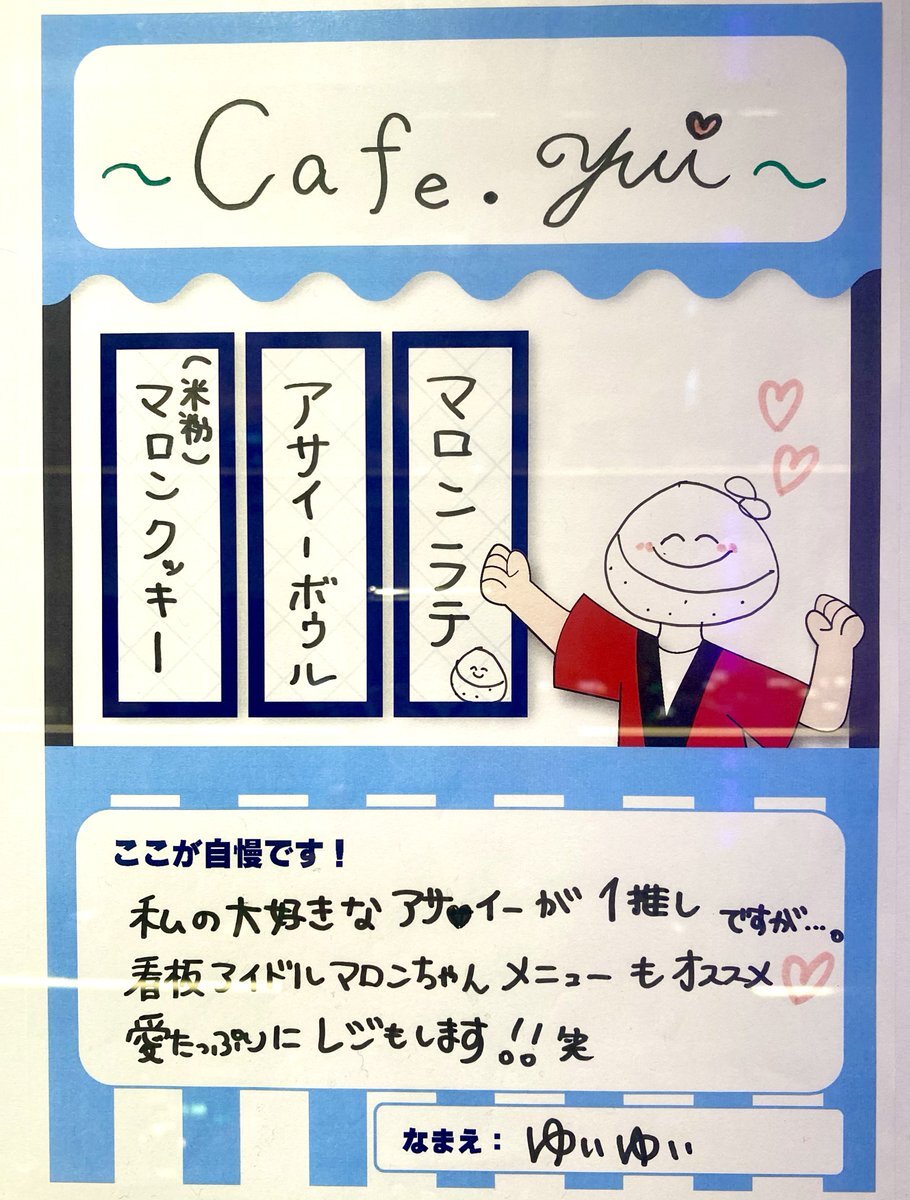 ～Cafe.yui～
マロンラテ
アサイーボウル
(米粉)
マロンクッキー
ここが自慢です！
私の大好きなアサ♥イーが1推しですが…。
看板アイドルマロンちゃんメニューもオススメ♡
愛たっぷりにレジもします!!笑
なまえ：ゆぃゆぃ